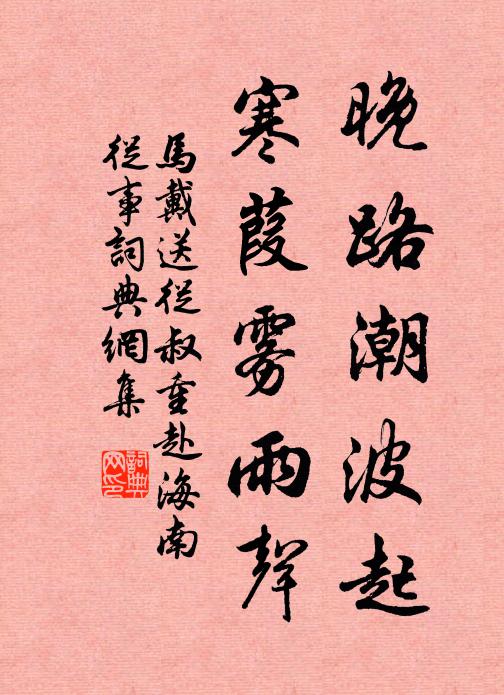 晚路潮波起
寒葭雾雨聲
馬戴送從叔重赴海南
從事詞典網集
詞典网印